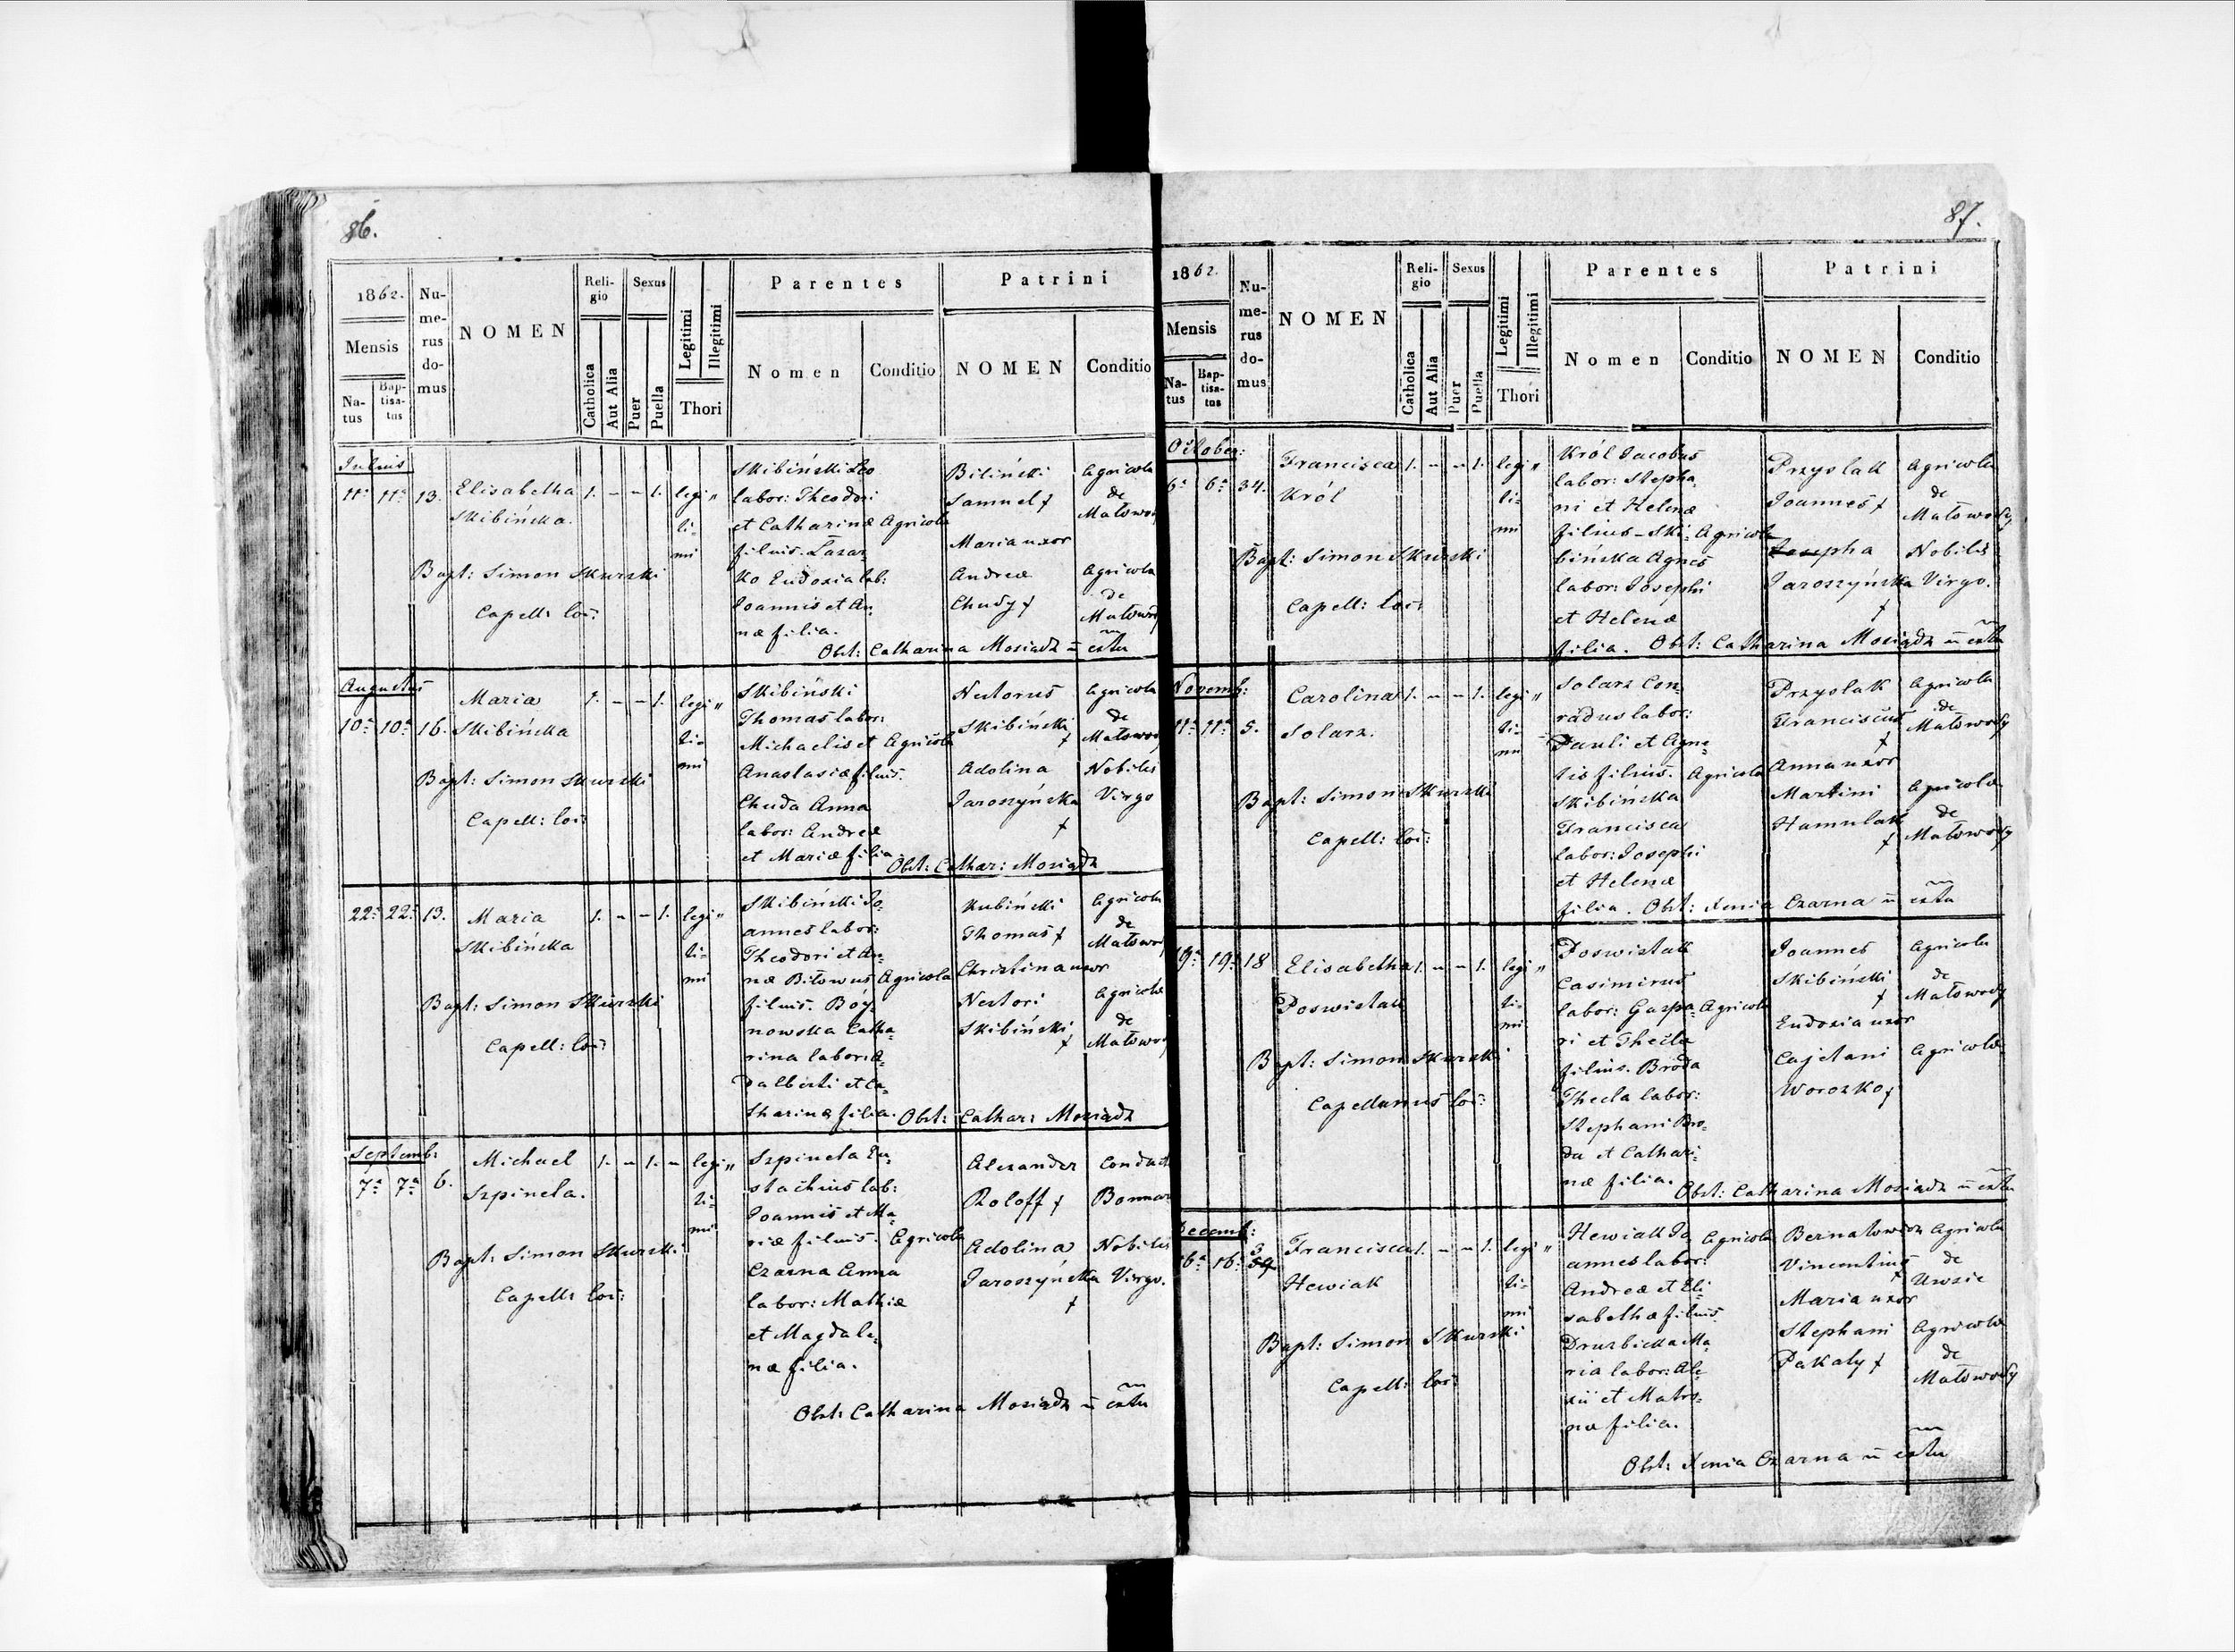 86.
1862.
Mensis
Na-
tus
Bap-
tisa-
tus
Nu-
me-
rus
do-
mus
NOMEN
Reli-
gio
Catholica
Aut Alia
Sexus
Puer
Puella
Legitimi
Illegitimi
Thori
Parentes
Nomen
Conditio
Patrini
NOMEN
Conditio
Julius
11ª 11ª 13.
Elisabetha
Skibińska.
1. - - 1.
legi„
ti-
mi
Bapt: Simon Skurski
Capell: loci:
Skibiński Leo
labor: Theodori
et Catharinæ
filius. Lazar
ko Eudoxia lab:
Joannis et An
næ filia.
Agricola
Biliński
Samuel †
Maria uxor
Andreæ
Chudy †
Agricola
de
Małowody
Agricola
de
Małowody
Obst: Catharina Mosiądz ũ extu
Augustus
10ª 10ª 16.
Maria
Skibińska
1. - - 1.
legi„
ti-
mi
Bapt: Simon Skurski
Capell: loci:
Skibiński
Thomas labor:
Michaelis et
Anastasiæ filius.
Chuda Anna
labor: Andreæ
et Mariæ filia.
Agricola
Nestorus
Skibiński
†
Adolina
Jaroszyńska
†
Agricola
de
Małowody
Nobilis
Virgo
Obst: Cathar: Mosiądz
22ª 22ª 13.
Maria
Skibińska
1. - - 1.
legi„
ti-
mi
Bapt: Simon Skurski
Capell: loci:
Skibiński Jo
annes labor:
Theodori et An-
næ Biłowus
filius. Bój-
nowska Catha-
rina labor: A-
dalberti et Ca-
tharinæ filia.
Agricola
Kubiński
Thomas †
Christina uxor
Nestori
Skibiński
†
Agricola
de
Małowody
Agricola
de
Małowody
Obst: Cathar: Mosiądz
Septemb:
7ª 7ª 6.
Michael
Szpineta.
1. - 1. -
legi„
ti-
mi
Bapt: Simon Skurski
Capell: loci:
Szpineta Eu-
stachius lab:
Joannis et Ma-
riæ filius.
Czarna Anna
labor: Mathiæ
et Magdale-
næ filia.
Agricola
Alexander
Roloff †
Adolina
Jaroszyńska
†
Conduct
Bonnar
Nobilis
Virgo.
Obst: Catharina Mosiądz ũ extu
87.
1862.
Mensis
Na-
tus
Bap-
tisa-
tus
Nu-
me-
rus
do-
mus
NOMEN
Reli-
gio
Catholica
Aut Alia
Sexus
Puer
Puella
Legitimi
Illegitimi
Thori
Parentes
Nomen
Conditio
Patrini
NOMEN
Conditio
October:
6ª 6ª 34.
Francisca
Król
1. - - 1.
legi„
ti-
mi
Bapt: Simon Skurski
Capell: loci:
Król Jacobus
labor: Stepha
ni et Helenæ
filius - Ski-
bińska Agnes
labor: Josephi
et Helenæ
filia.
Agricola
Przyslak
Joannes †
Josepha
Jaroszyńska
†
Agricola
de
Małowody
Nobilis
Virgo.
Obst: Catharina Mosiądz ũ extu
Novemb:
11ª 11ª 5.
Carolina
Solarz.
1. - - 1.
legi„
ti-
mi
Bapt: Simon Skurski
Capell: loci:
Solarz Con
radus labor:
Pauli et Agne-
tis filius.
Skibińska
Francisca
labor: Josephi
et Helenæ
filia.
Agricola
Przyslak
Franciscus
†
Anna uxor
Martini
Hamulak
†
Agricola
de
Małowody
Agricola
de
Małowody
Obst: Xenia Czarna ũ extu
19ª 19ª 18
Elisabetha
Poswistak
1. - - 1.
legi„
ti-
mi
Bapt: Simon Skurski
Capellanus loci:
Poswistak
Casimirus
labor: Gaspa-
ri et Thecla
filius. Broda
Thecla labor:
Stephani Bro-
da et Cathari-
næ filia.
Agricola
Joannes
Skibiński
†
Eudoxia uxor
Cajetani
Woroszko †
Agricola
de
Małowody
Agricola
Obst: Catharina Mosiądz ũ extu
Decemb:
16ª 16ª 3
Francisca
Hewiak
1. - - 1.
legi„
ti-
mi
Bapt: Simon Skurski
Capell: loci:
Hewiak Jo
annes labor:
Andreæ et Eli
sabethæ filius
Druzbicka Ma
ria labor: Ale
xii et Matro-
næ filia.
Agricola
Bernatowicz
Vincentius
†
Maria uxor
Stephani
Pakaly †
Agricola
de
Uwsie
Agricola
de
Małowody
Obst: Xenia Czarna ũ extu